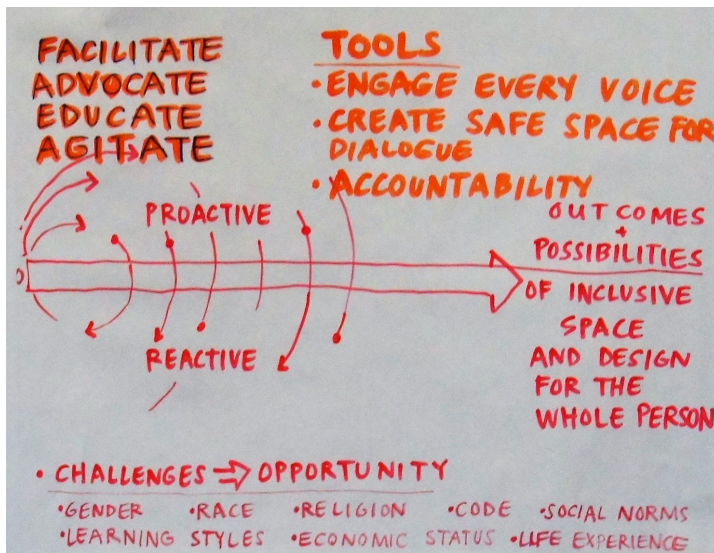 FACILITATE
ADVOCATE
EDUCATE
AGITATE
TOOLS
• ENGAGE EVERY VOICE
• CREATE SAFE SPACE FOR
DIALOGUE
• ACCOUNTABILITY
PROACTIVE
REACTIVE
OUTCOMES
+
POSSIBILITIES
OF INCLUSIVE
SPACE
AND DESIGN
FOR THE
WHOLE PERSON
• CHALLENGES ⇒ OPPORTUNITY
• GENDER • RACE • RELIGION • CODE • SOCIAL NORMS
• LEARNING STYLES • ECONOMIC STATUS • LIFE EXPERIENCE